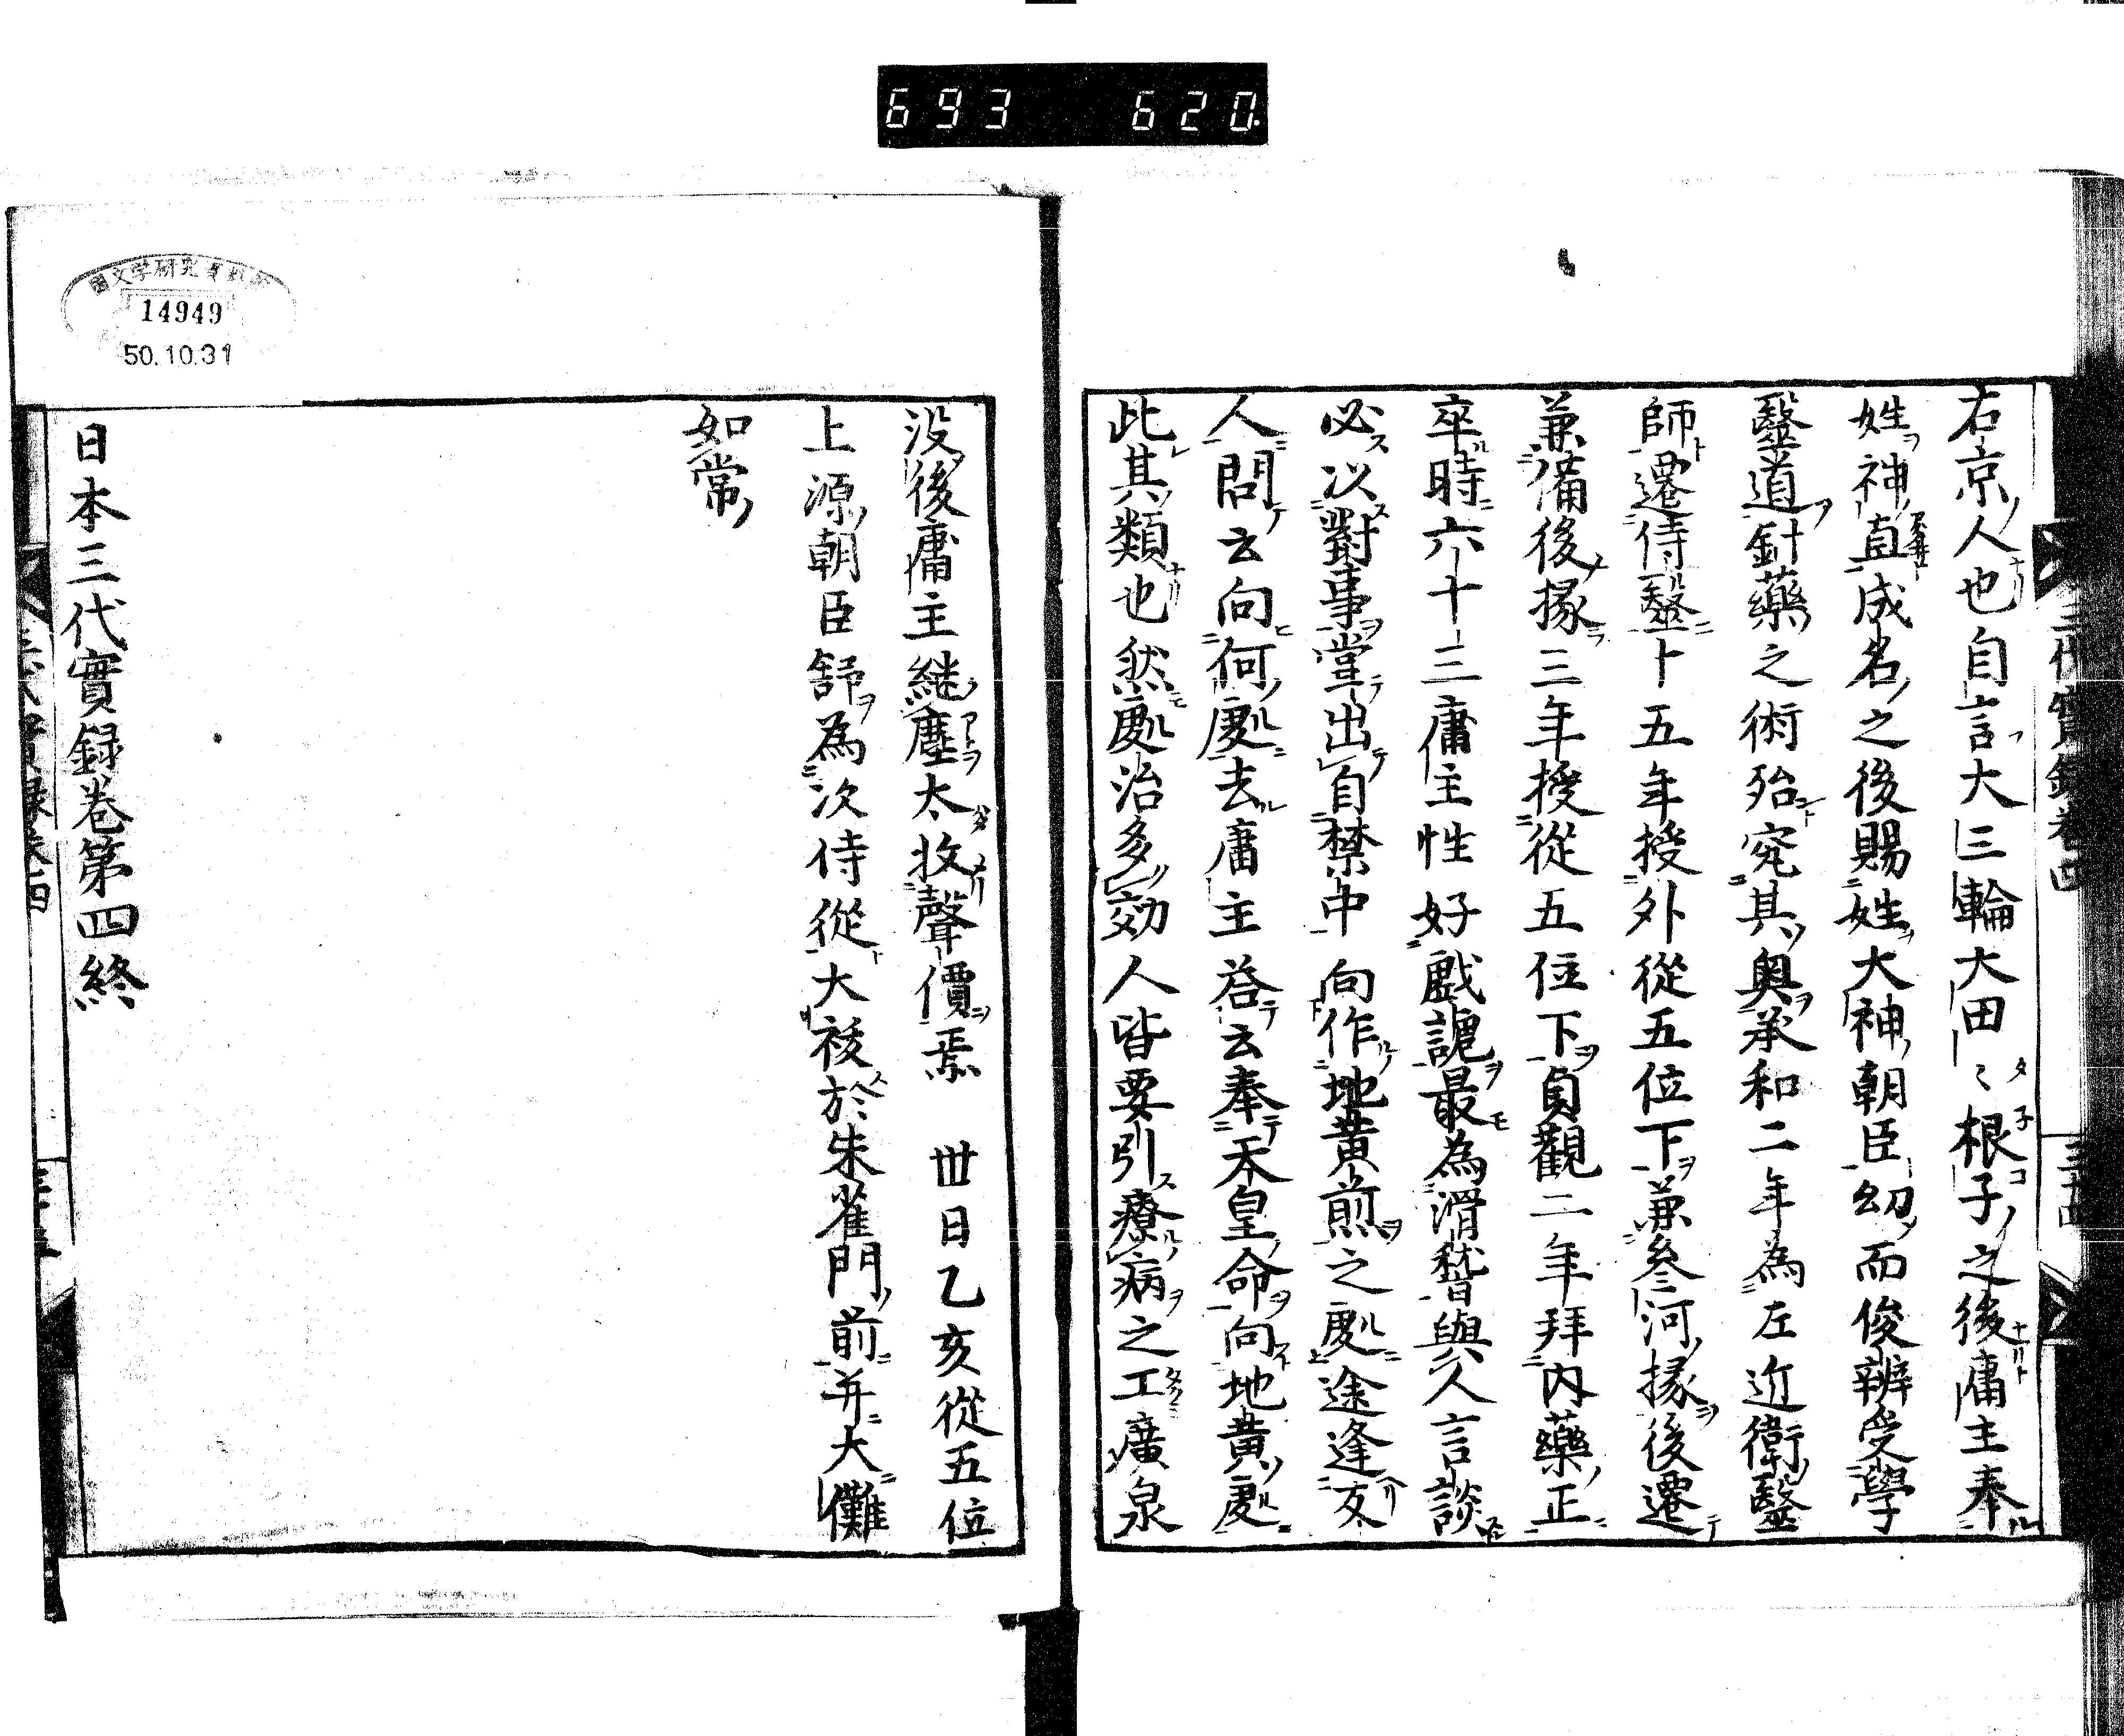 693 620.
右京人也自言大三輪大田〻根子之後庸主奉
姓神直成名之後賜姓大神朝臣幼而俊辨受學
毉道針藥之術殆究其奥承和二年為左近衛毉
師遷侍毉十五年授外從五位下兼參河掾後遷
兼備後掾三年授從五位下貞觀二年拜内藥正
卒時六十三庸主性好戲謔最為滑稽與人言談
必以對事甞出自禁中向作地黄煎之處途逢友
人問云向何處去庸主答云奉天皇命向地黄處
此其類也然處治多効人皆要引療病之工廣泉
没後庸主継塵太收聲價焉 丗日乙亥從五位
上源朝臣舒為次侍從大祓於朱雀門前并大儺
如常
日本三代實録巻第四終
14949
50.10.31